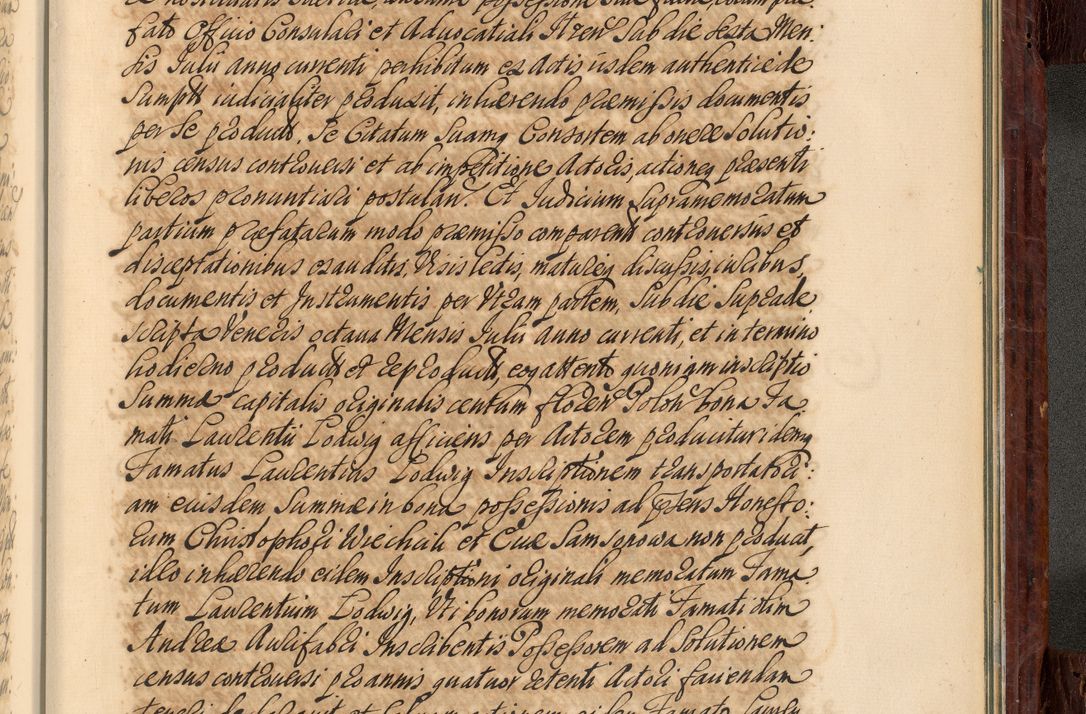 fato Officio Consulari et Advocatiali Itren Sub die Sexta Men:
sis Iulii anno currenti perhibitum ex Actis iisdem authentice de
Sumptt iudicialiter produxit, inhærendo præmissis documentis
per se produtt. Se Citatum Suamq Consortem ab onere Solutio:
nis census controversi et ab impetitione Actoris, actioneq præsenti
liberos pronuntiari postulan. Et Iudicium Supramemoratum
partium præfatarum modo præmisso comparentt controversiis et
disceptationibus exauditis, Visis lectis, matureq discussis iuribus,
documentis et Instrumentis per Utram partem, Sub die Suprade
scripta Veneris octava Mensis Iulii anno currenti, et in termino
hodierno produtt et reprodutt, eoq attento quoniam inscriptio
Summæ capitalis originalis centum floren Poloń bona Fa
mati Laurentii Lodwig afficiens per Actorem producitur idemq
Famatus Laurentius Lodwig Inscriptionem transportatori:
am eiusdem Summæ in bona possessionis ad præsens Honesto:
rum Christophori Wiechcik et Evæ Samsonowa non producat,
ideo inhærendo eidem Inscriptioni originali memoratum Fama
tum Laurentium Lodwig, Uti bonorum memorati Famati olim
Andreæ Aurifabri Inscribentis Possessorem ad Solutionem
census controversi pro annis quatuor retenti Actori faciendam